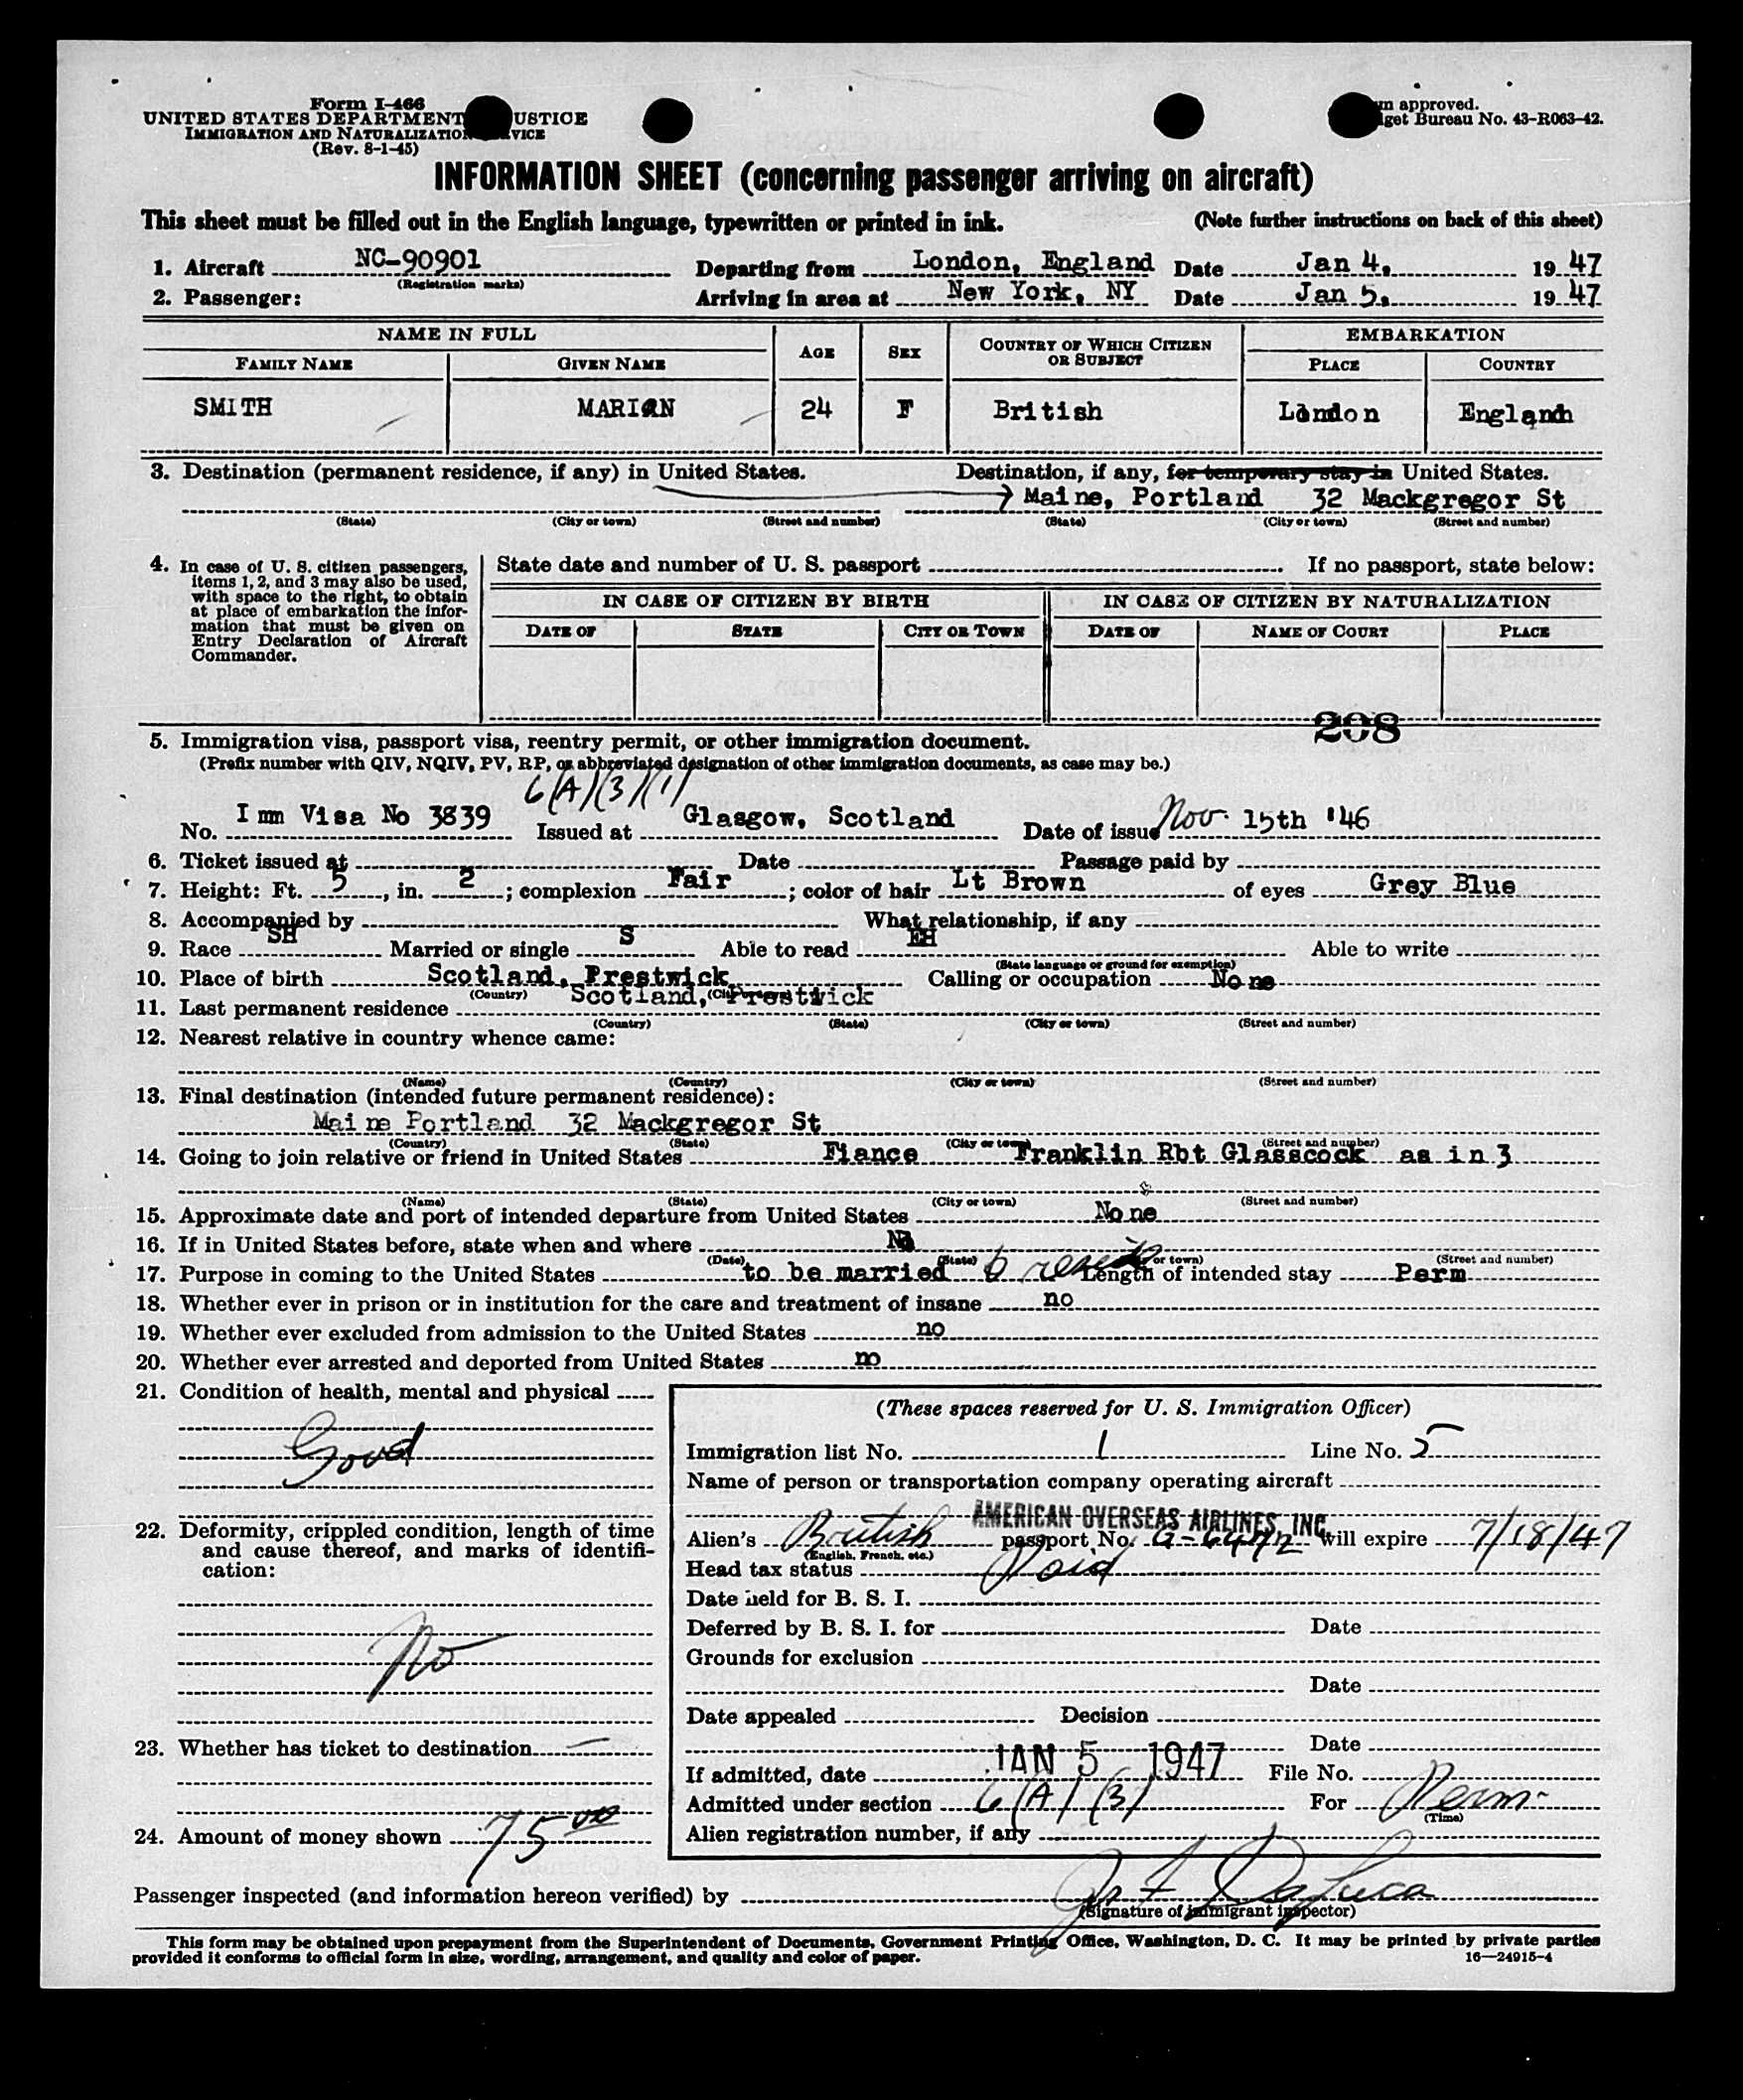 Form I-466
UNITED STATES DEPARTMENT USTICE
IMMIGRATION AND NATURALIZATION VICE
(Rev. 8-1-45)
m approved.
get Bureau No. 43-R063-42.
INFORMATION SHEET (concerning passenger arriving on aircraft)
This sheet must be filled out in the English language, typewritten or printed in ink. (Note further instructions on back of this sheet)
1. Aircraft NC-90901 Departing from London, England Date Jan 4, 19 47
(Registration marks)
2. Passenger: Arriving in area at New York, NY Date Jan 5, 19 47
NAME IN FULL AGE SEX COUNTRY OF WHICH CITIZEN OR SUBJECT EMBARKATION
FAMILY NAME GIVEN NAME PLACE COUNTRY
SMITH MARION 24 F British London England
3. Destination (permanent residence, if any) in United States. Destination, if any, for temporary stay in United States.
Maine, Portland 32 Mackgregor St
(State) (City or town) (Street and number) (State) (City or town) (Street and number)
4. In case of U. S. citizen passengers, items 1, 2, and 3 may also be used, with space to the right, to obtain at place of embarkation the information that must be given on Entry Declaration of Aircraft Commander.
State date and number of U. S. passport If no passport, state below:
IN CASE OF CITIZEN BY BIRTH IN CASE OF CITIZEN BY NATURALIZATION
DATE OF STATE CITY OR TOWN DATE OF NAME OF COURT PLACE
208
5. Immigration visa, passport visa, reentry permit, or other immigration document.
(Prefix number with QIV, NQIV, PV, RP, or abbreviated designation of other immigration documents, as case may be.)
6(A)(3)(1)
No. Imm Visa No 3839 Issued at Glasgow, Scotland Date of issue Nov. 15th '46
6. Ticket issued at Date Passage paid by
7. Height: Ft. 5, in. 2; complexion Fair; color of hair Lt Brown of eyes Grey Blue
8. Accompanied by What relationship, if any
9. Race SH Married or single S Able to read EH Able to write
(State language or ground for exemption)
10. Place of birth Scotland, Prestwick Calling or occupation None
(Country)
11. Last permanent residence Scotland, Prestwick
(Country) (State) (City or town) (Street and number)
12. Nearest relative in country whence came:
(Name) (Country) (City or town) (Street and number)
13. Final destination (intended future permanent residence):
Maine Portland 32 Mackgregor St
(Country) (State) (City or town) (Street and number)
14. Going to join relative or friend in United States Fiance Franklin Rbt Glasscock as in 3
(Name) (State) (City or town) (Street and number)
15. Approximate date and port of intended departure from United States None
16. If in United States before, state when and where No
(Date) (State) or town) (Street and number)
17. Purpose in coming to the United States to be married Length of intended stay Perm
18. Whether ever in prison or in institution for the care and treatment of insane no
19. Whether ever excluded from admission to the United States no
20. Whether ever arrested and deported from United States no
21. Condition of health, mental and physical
Good
22. Deformity, crippled condition, length of time and cause thereof, and marks of identification:
No
23. Whether has ticket to destination —
24. Amount of money shown 75 00
(These spaces reserved for U. S. Immigration Officer)
Immigration list No. 1 Line No. 5
Name of person or transportation company operating aircraft
AMERICAN OVERSEAS AIRLINES, INC.
Alien's British passport No. will expire 7/18/47
(English, French, etc.)
Head tax status Paid
Date held for B. S. I.
Deferred by B. S. I. for Date
Grounds for exclusion
Date
Date appealed Decision
Date
If admitted, date JAN 5 1947 File No.
Admitted under section 6(A)(3) For Perm.
(Time)
Alien registration number, if any
Passenger inspected (and information hereon verified) by
(Signature of immigrant inspector)
This form may be obtained upon prepayment from the Superintendent of Documents, Government Printing Office, Washington, D. C. It may be printed by private parties
provided it conforms to official form in size, wording, arrangement, and quality and color of paper. 16—24915-4